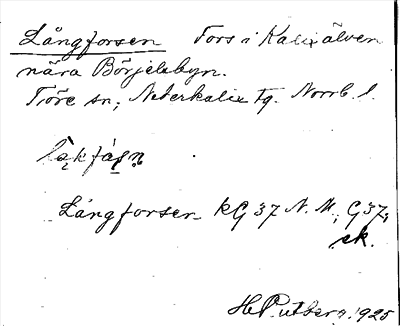 Långforsen Fors i Kalixälven
nära Börjelsbyn.
Töre sn, Neterkalix tg. Norrb. l.
Långforsen kG 37 N. M., G 37,
ek.
1925